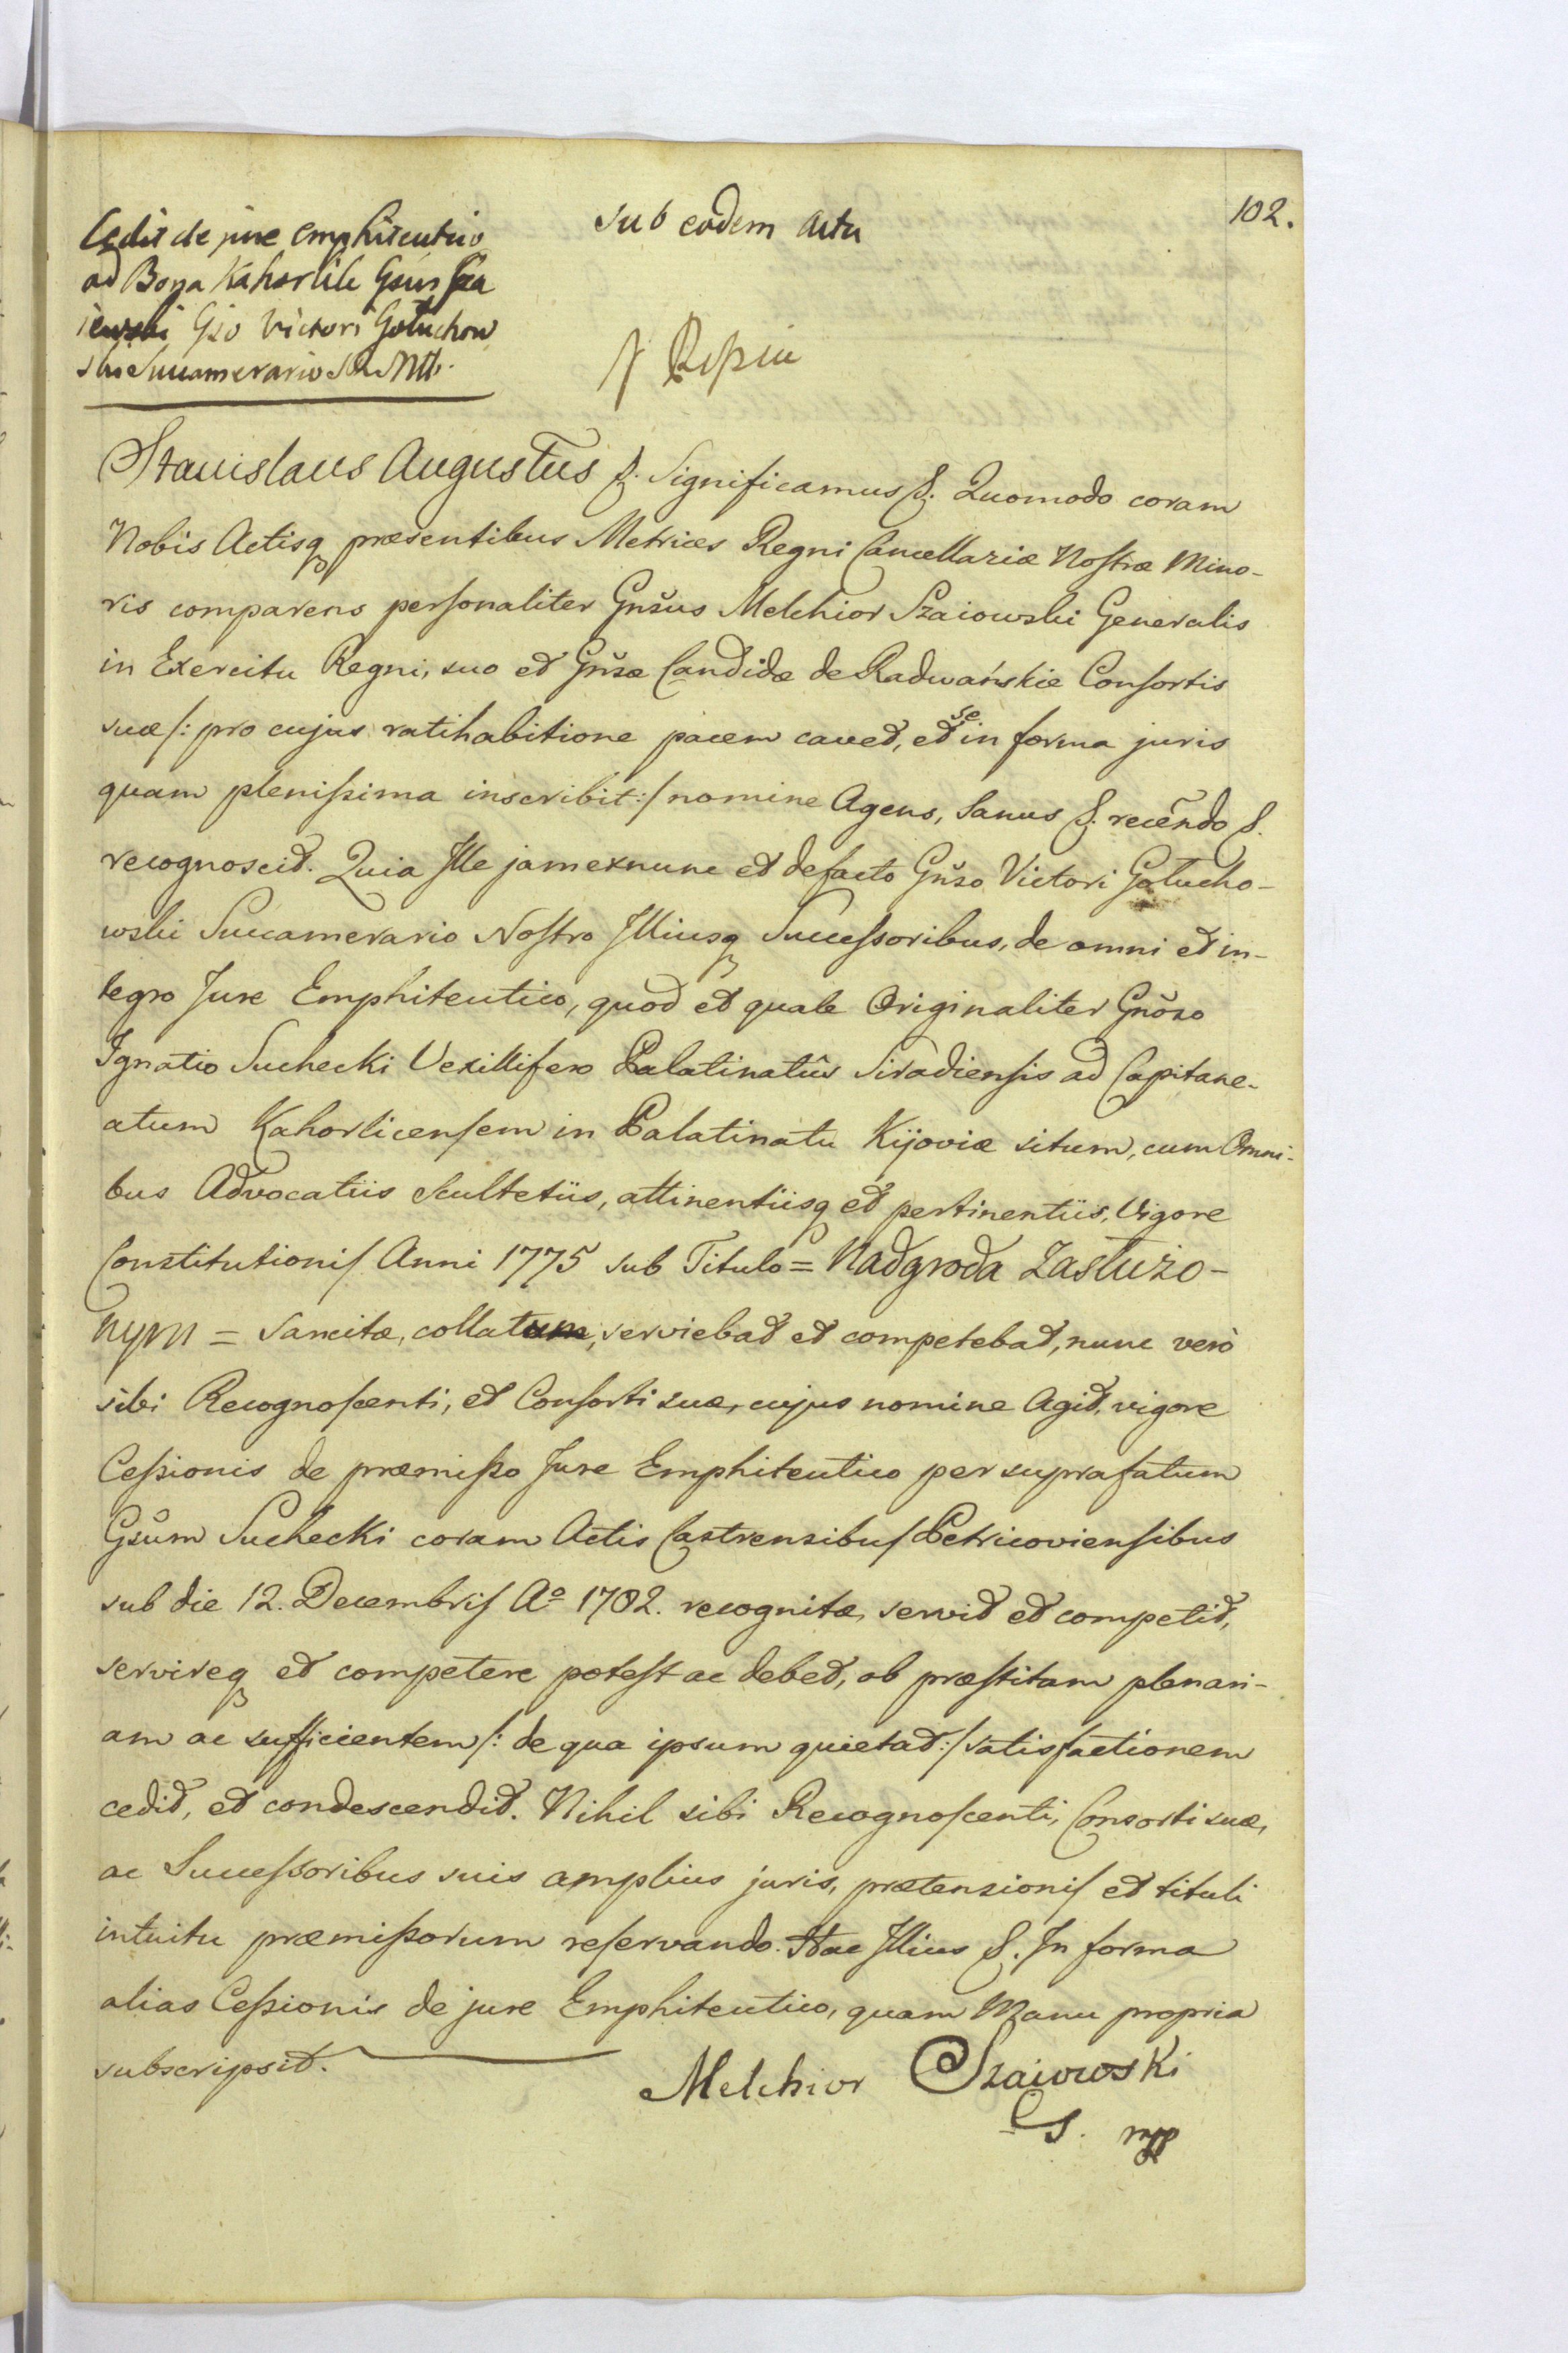 102.
Sub eodem Actu
Cedit de jure Emphiteutico
ad Bona Kahorlik Gsus Sza
iewski Gso Victori Gołuchow
ski Succamerario
Stanislaus Augustus &. Significamus &. Quomodo coram
Nobis Actisq præsentibus Metrices Regni Cancellariæ Nostræ Mino-
ris comparens personaliter Gnšus Melchior Szaiowski Generalis
in Exercitu Regni, suo et Gnšæ Candidæ de Radwańskie Consortis
suæ /: pro cujus ratihabitione pacem cavet, et se in forma juris
quam plenissima inscribit :/ nomine Agens, Sanus &. recẽndo &.
recognoscit. Quia Ille jamexnunc et defacto Gnšo Victori Gołucho-
wski Succamerario Nostro Illiusq Successoribus, de omni et in-
tegro Jure Emphiteutico, quod et quale Originaliter Gnõso
Ignatio Suchecki Vexillifero Palatinatûs Siradiensis ad Capitane-
atum Kahorlicensem in Palatinatu Kijoviæ situm, cum Omni-
bus Advocatiis Scultetiis, attinentiisq et pertinentiis, Vigore
Constitutionis Anni 1775 sub Titulo = Nadgroda Zasłużo-
nym = Sancitæ, collatum, serviebat et competebat, nunc verò
sibi Recognoscenti, et Consorti suæ, cujus nomine Agit, vigore
Cessionis de præmisso Jure Emphiteutico per suprafatum
Gsũm Suchecki coram Actis Castrensibus Petricoviensibus
sub die 12. Decembris Aº 1782. recognitæ, servit et competit,
servireq et competere potest ac debet, ob præstitam plenari-
am ac sufficientem /: de qua ipsum quietat :/ satisfactionem
cedit, et condescendit. Nihil sibi Recognoscenti, Consorti suæ,
ac Successoribus suis amplius juris, prætensionis et tituli
intuitu præmissorum reservando. Hac Illius &. In forma
alias Cessionis de jure Emphiteutico, quam Manu propria
subscripsit.
Melchior Szaiowski
GS. mpp